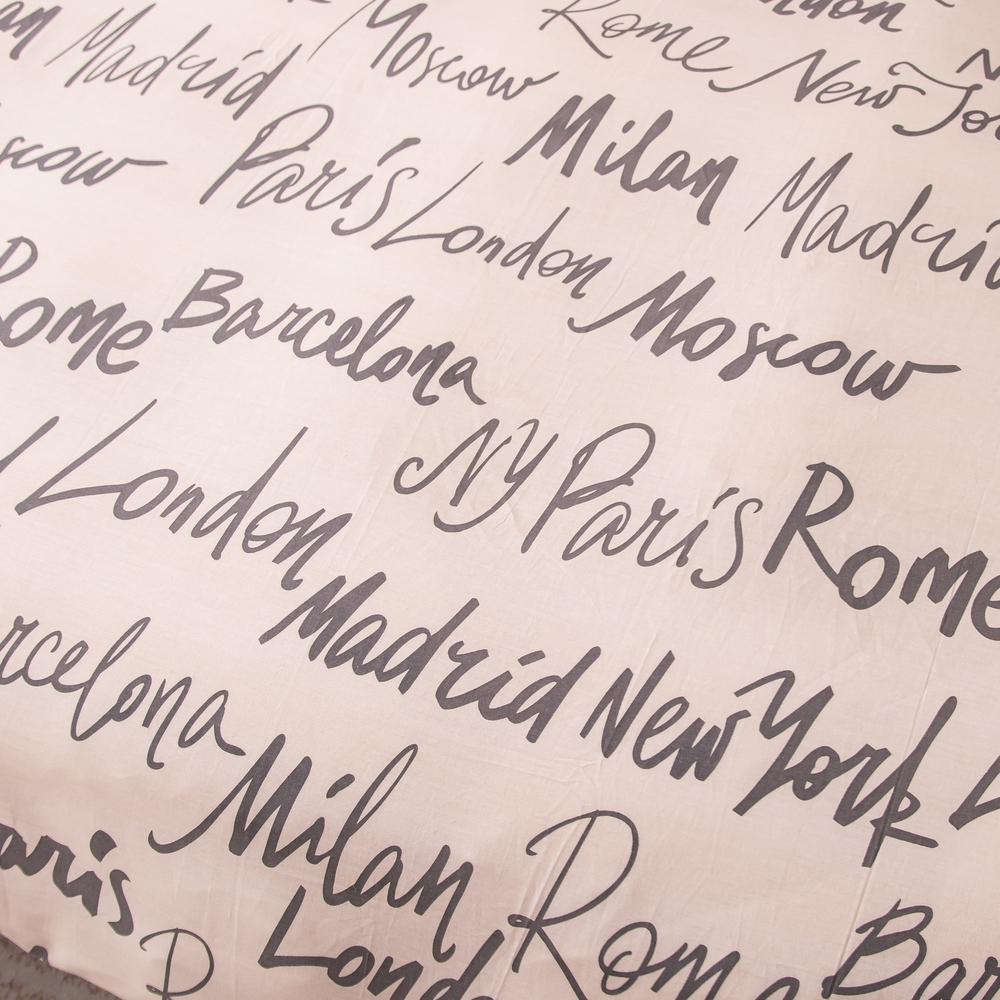 Madrid Moscow Rome New York
Moscow Paris London Milan Madrid
Rome Barcelona Moscow
London NY Paris Rome
Barcelona Madrid New York
Paris Milan Rome Bar
Lond